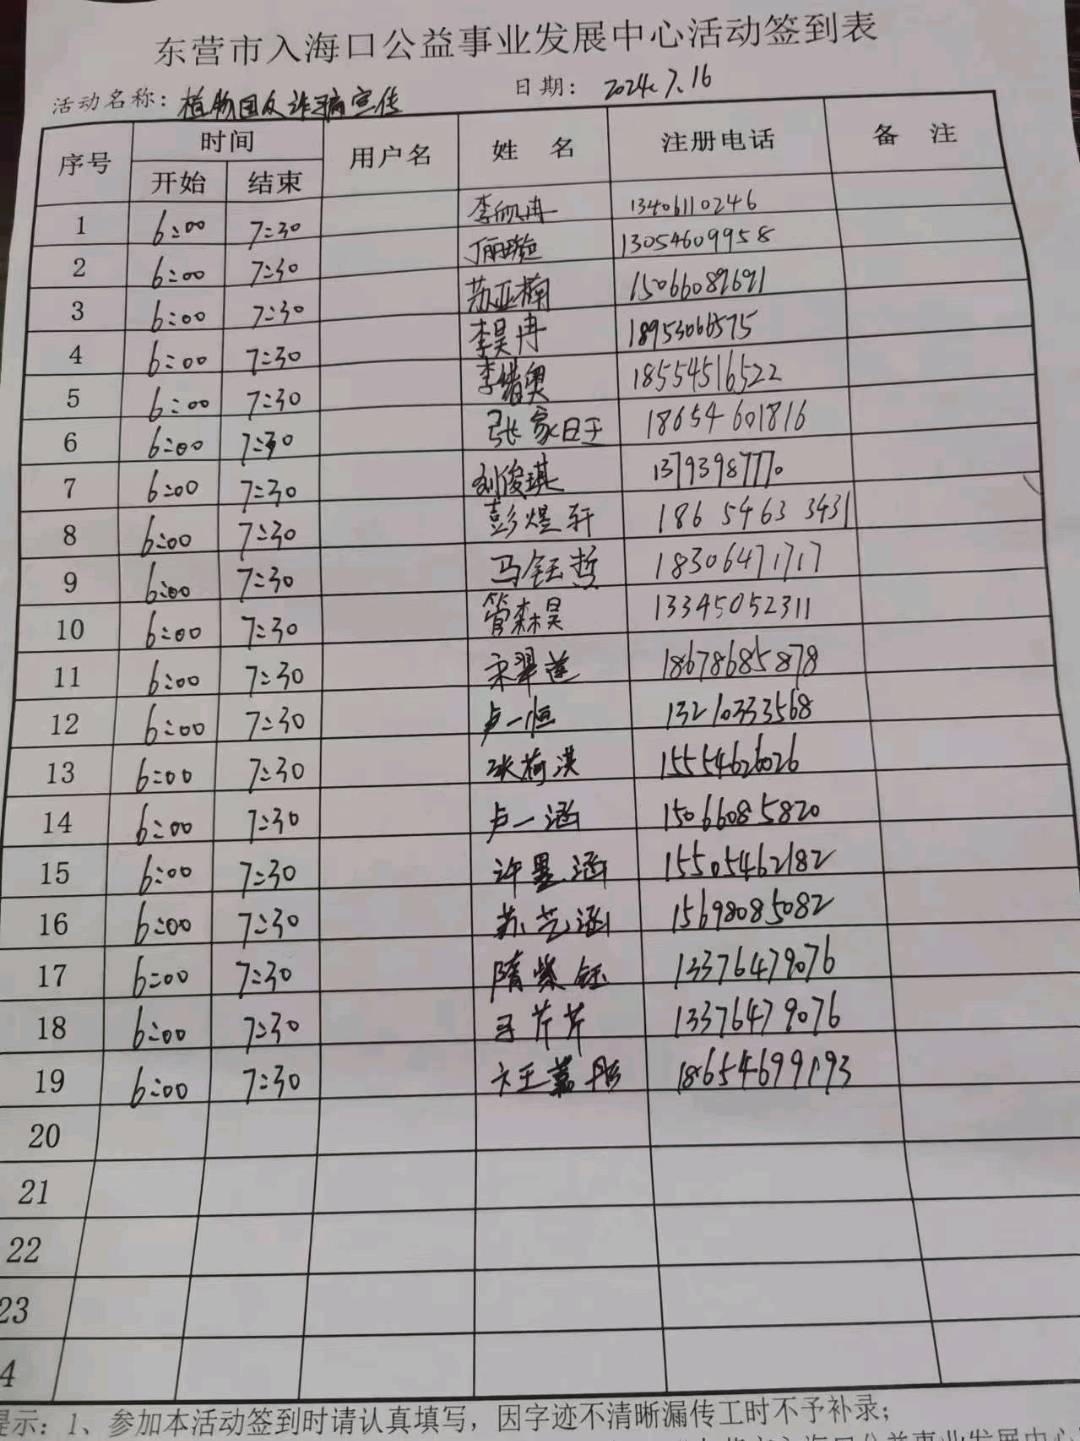 东营市入海口公益事业发展中心活动签到表
活动名称：植物园反诈骗宣传 日期：2024.7.16
序号 时间 用户名 姓名 注册电话 备注
开始 结束
1 6:00 7:30 李欣冉 13406110246
2 6:00 7:30 丁丽璇 13054609958
3 6:00 7:30 苏亚楠 15066089691
4 6:00 7:30 李昊冉 18953066575
5 6:00 7:30 李绪奥 18554516522
6 6:00 7:30 张家旺 18654601816
7 6:00 7:30 刘俊琪 13793987770
8 6:00 7:30 彭煜轩 18654633431
9 6:00 7:30 马钰哲 18306471717
10 6:00 7:30 管森昊 13345052311
11 6:00 7:30 宋翠莲 18678685878
12 6:00 7:30 卢一恒 13210333568
13 6:00 7:30 张荷淇 15554626026
14 6:00 7:30 卢一涵 15066085820
15 6:00 7:30 许墨涵 15505462182
16 6:00 7:30 苏艺涵 15698085082
17 6:00 7:30 隋紫钰 13376479076
18 6:00 7:30 王芹芹 13376479076
19 6:00 7:30 卞王嘉彤 18654699193
20
21
22
23
4
提示：1、参加本活动签到时请认真填写，因字迹不清晰漏传工时不予补录；